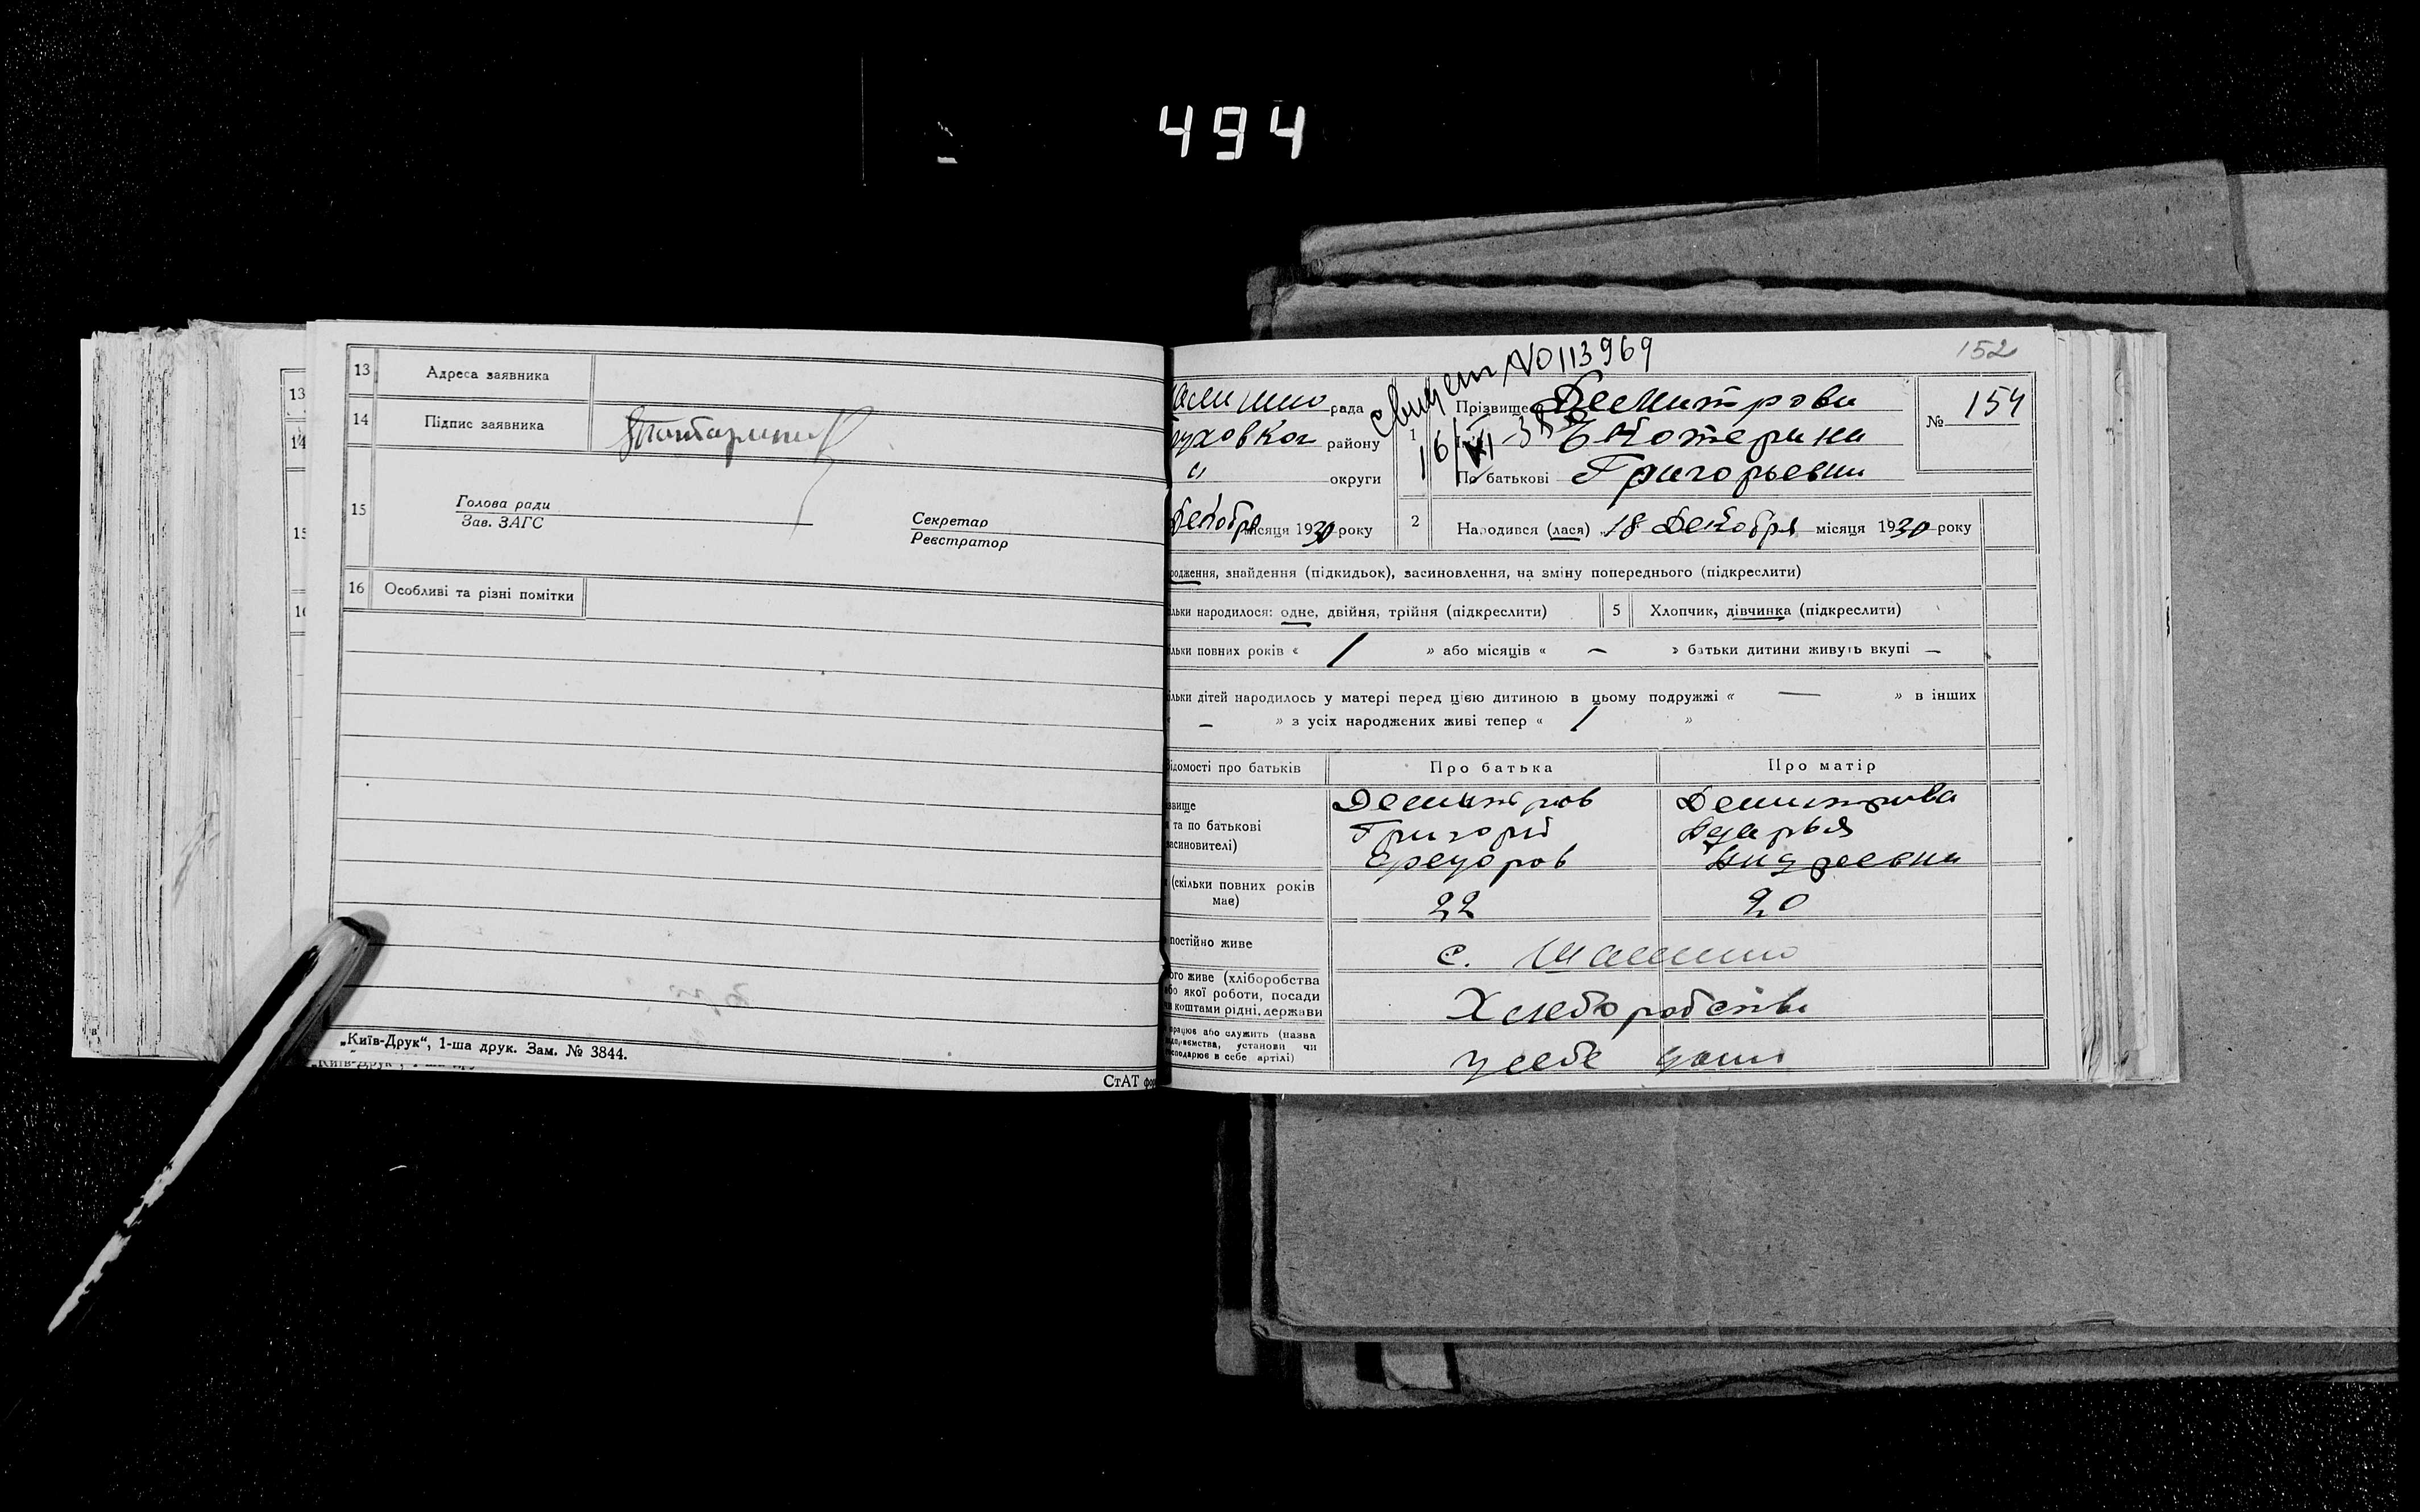 494
13 Адреса заявника
14 Підпис заявника
15 Голова ради
Зав. ЗАГС
Секретар
Реєстратор
16 Особливі та різні помітки
„Київ-Друк“, 1-ша друк. Зам. № 3844.
СтАТ
13
14
152
№ 113969
рада
району
округи
1 Прізвище Демитрова
Екотерина
По батькові Григорьевна
№ 154
місяця 1930 року
2 Народився (лася) 18 Декобря місяця 1930 року
знайдення (підкидьок), засиновлення, на зміну попереднього (підкреслити)
народилося: одне, двійня, трійня (підкреслити)
5 Хлопчик, дівчинка (підкреслити)
повних років « 1 » або місяців « — » батьки дитини живуть вкупі —
дітей народилось у матері перед цією дитиною в цьому подружжі « — » в інших
— » з усіх народжених живі тепер « 1 »
про батьків
Про батька
Про матір
та по батькові
Демитров
Григорій
Федоров
Демитрова
Дарья
Андреевна
(скільки повних років
має)
22
20
постійно живе
с.
живе (хліборобства
якої роботи, посади
коштами рідні, держави
Хлеборобства
або служить (назва
установи чи
в себе артілі)
у себе дома